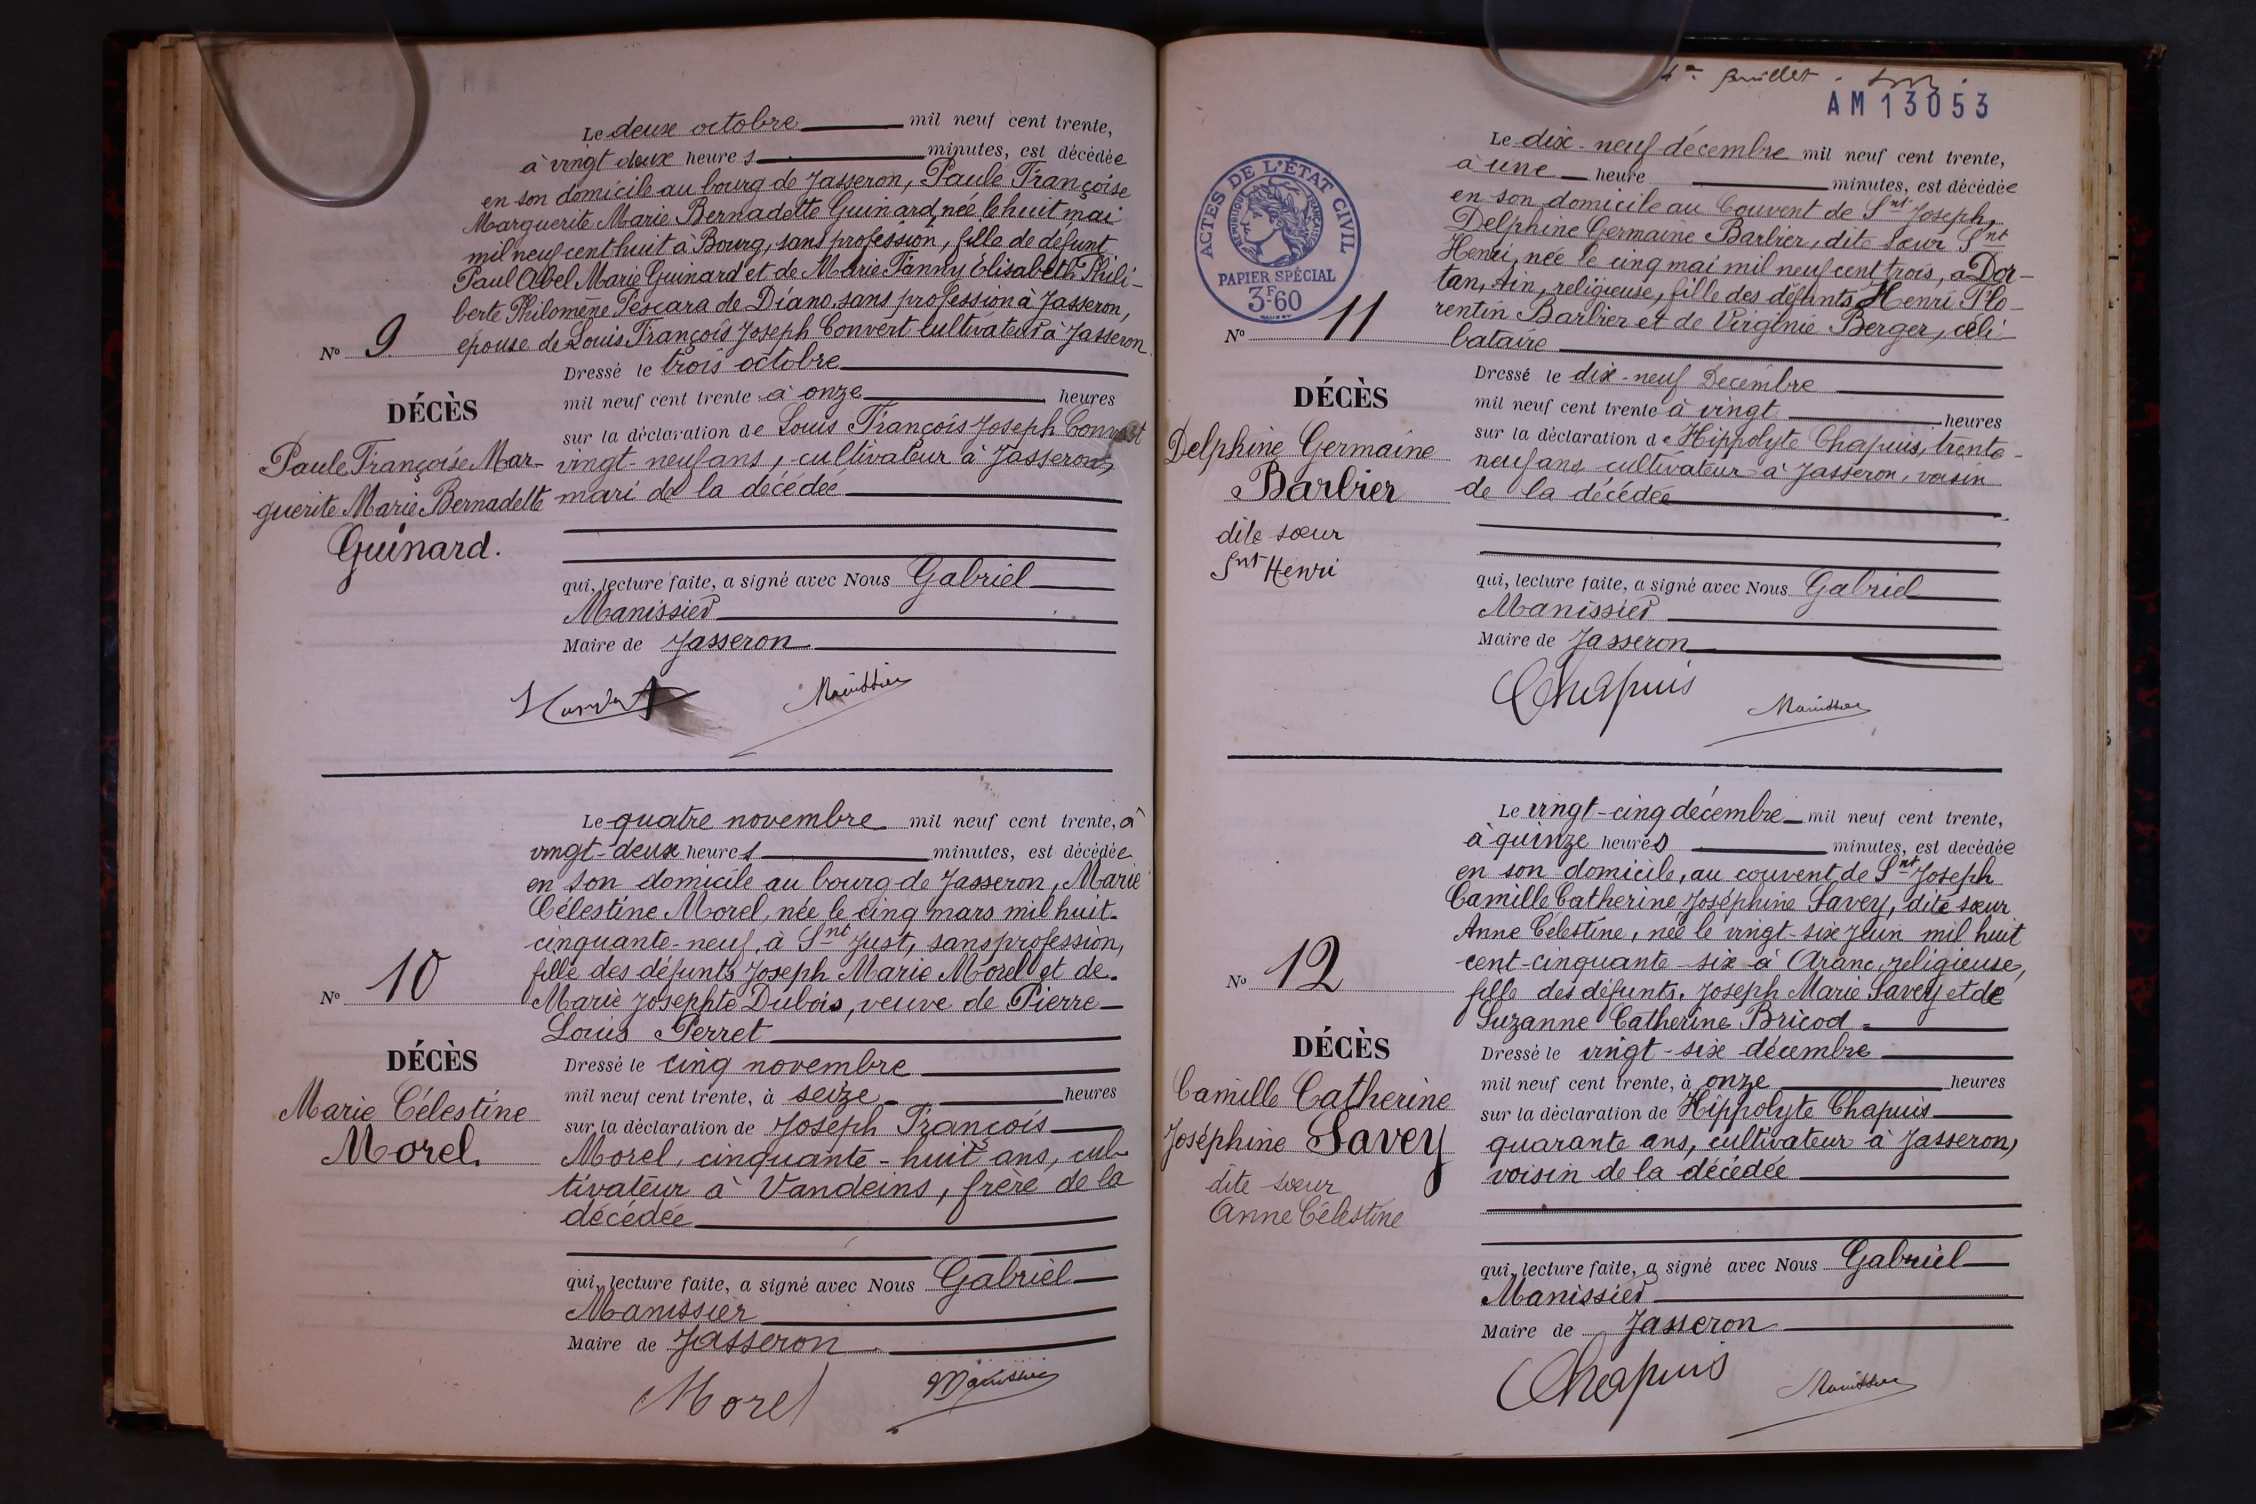 Le deux octobre mil neuf cent trente,
à vingt deux heures minutes, est décédée
en son domicile au bourg de Jasseron, Paule Françoise
Marguerite Marie Bernadette Guinard, née le huit mai
mil neuf cent huit à Bourg, sans profession, fille de défunt
Paul Abel Marie Guinard et de Marie Fanny Elisabeth Phili-
berte Philomène Pescara de Diano, sans profession à Jasseron,
épouse de Louis François Joseph Convert cultivateur à Jasseron
N° 9
DÉCÈS
Paule Françoise Mar-
guerite Marie Bernadette
Guinard.
Dressé le trois octobre
mil neuf cent trente à onze heures
sur la déclaration de Louis François Joseph Convert
vingt-neuf ans, cultivateur à Jasseron,
mari de la décédée
qui, lecture faite, a signé avec Nous Gabriel
Manissier
Maire de Jasseron
Manissier
Le quatre novembre mil neuf cent trente, à
vingt-deux heures minutes, est décédée
en son domicile au bourg de Jasseron, Marie
Célestine Morel, née le cinq mars mil huit-
cinquante-neuf, à Snt Just, sans profession,
fille des défunts Joseph Marie Morel et de
Marie Josephte Dubois, veuve de Pierre
Louis Perret
N° 10
DÉCÈS
Marie Célestine
Morel.
Dressé le cinq novembre
mil neuf cent trente, à seize heures
sur la déclaration de Joseph François
Morel, cinquante-huit ans, cul-
tivateur à Vandeins, frère de la
décédée
qui, lecture faite, a signé avec Nous Gabriel
Manissier
Maire de Jasseron
Morel Manissier
feuillet
AM13053
ACTES DE L'ÉTAT CIVIL
RÉPUBLIQUE FRANÇAISE
PAPIER SPÉCIAL
3F.60
Le dix-neuf décembre mil neuf cent trente,
à une heure minutes, est décédée
en son domicile au Couvent de Snt Joseph,
Delphine Germaine Barbier, dite sœur Snt
Henri, née le cinq mai mil neuf cent trois, à Dor-
tan, Ain, religieuse, fille des défunts Henri Flo-
rentin Barbier et de Virginie Berger, céli-
bataire
N° 11
DÉCÈS
Delphine Germaine
Barbier
dite sœur
Snt Henri
Dressé le dix-neuf Décembre
mil neuf cent trente à vingt heures
sur la déclaration de Hippolyte Chapuis, trente-
neuf ans cultivateur à Jasseron, voisin
de la décédée
qui, lecture faite, a signé avec Nous Gabriel
Manissier
Maire de Jasseron
Chapuis Manissier
Le vingt-cinq décembre mil neuf cent trente,
à quinze heures minutes, est decédée
en son domicile, au couvent de Snt Joseph
Camille Catherine Joséphine Savey, dite sœur
Anne Célestine, née le vingt-six Juin mil huit
cent-cinquante-six à Aranc, religieuse,
fille des défunts, Joseph Marie Savey et de
Suzanne Catherine Bricod
N° 12
DÉCÈS
Camille Catherine
Joséphine Savey
dite sœur
Anne Célestine
Dressé le vingt-six décembre
mil neuf cent trente, à onze heures
sur la déclaration de Hippolyte Chapuis
quarante ans, cultivateur à Jasseron,
voisin de la décédée
qui, lecture faite, a signé avec Nous Gabriel
Manissier
Maire de Jasseron
Chapuis Manissier